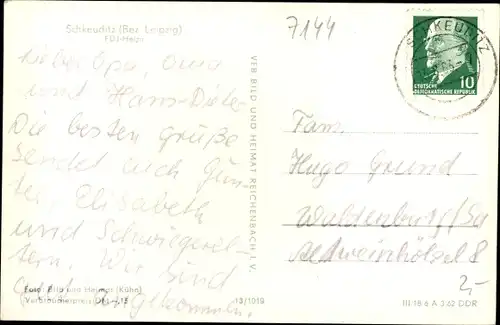 Schkeuditz (Bez. Leipzig)
FDJ-Heim
7144
Lieber Opa, Oma
und Hans-Dieter
Die besten Grüße
sendet euch Gün-
ter, Elisabeth
und Schwiegerel-
tern. Wir sind
gut angekommen.
Foto: Bild und Heimat (Kühn)
Verbraucherpreis DM
13/1019
VEB BILD UND HEIMAT REICHENBACH I. V.
SCHKEUDITZ
10
DEUTSCHE
DEMOKRATISCHE REPUBLIK
Fam.
Hugo Grund
Waldenburg/Sa
Altweinhölzel 8
2,-
III/18/6 A 3/62 DDR